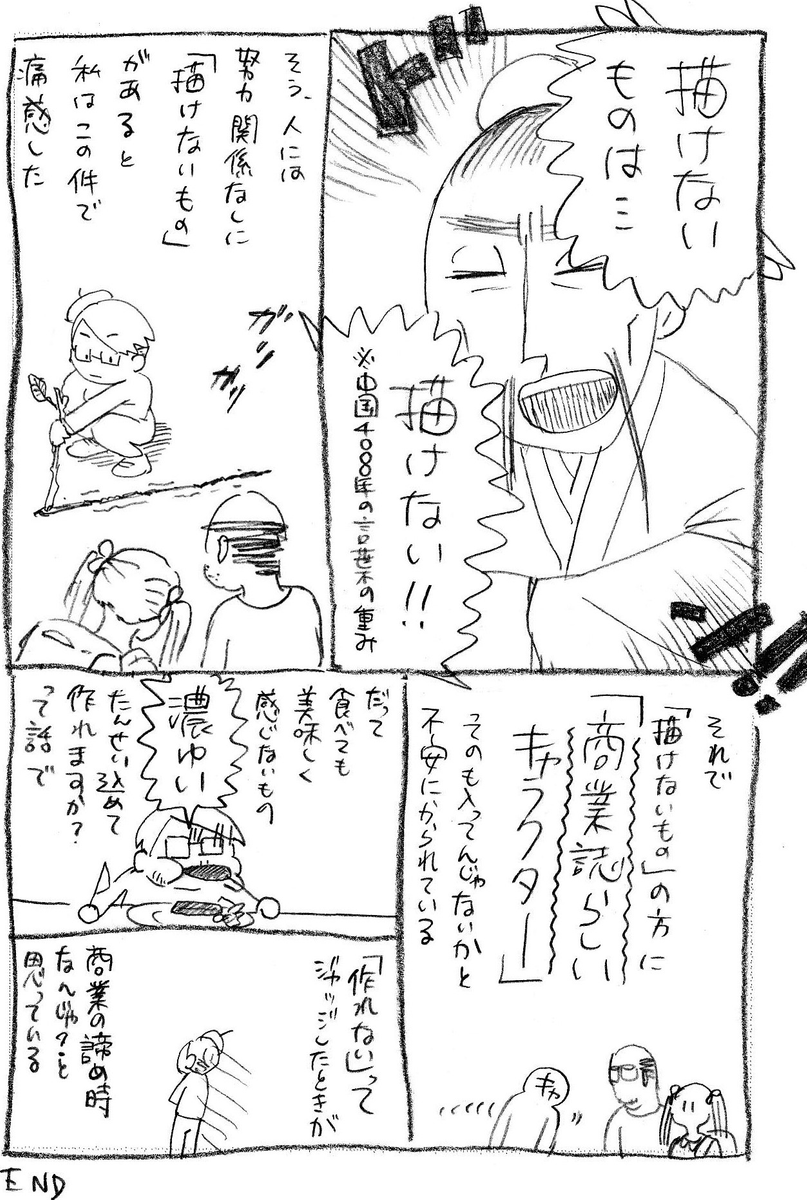 描けない
ものは…
ドドン!!
描けない!!
※中国400年の言葉の重み
そう、人には
努力関係なしに
「描けないもの」
があると
私はこの件で
痛感した
ガリ
ガリ
それで
「描けないもの」の方に
「商業誌らしい
キャラクター」
ってのも入ってんじゃないかと
不安にかられている
キャ
だって
食べても
美味しく
感じないもの
たんせい込めて
作れますか?
って話で
濃ゆい
「作れない」って
ジャッジしたときが
商業の諦め時
なんじゃ?と
思っている
END